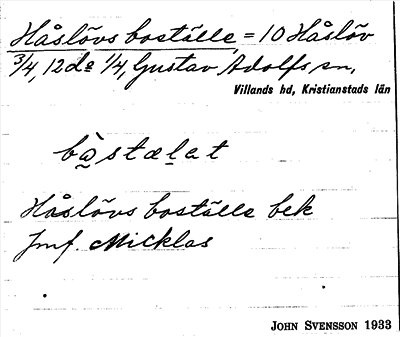 Håslövs boställe = 10 Håslöv
3/4, 12 do 1/4, Gustav Adolfs sn,
Villands hd, Kristianstads län
båstælat
Håslövs boställe bek
Jmf. Micklas
JOHN SVENSSON 1933